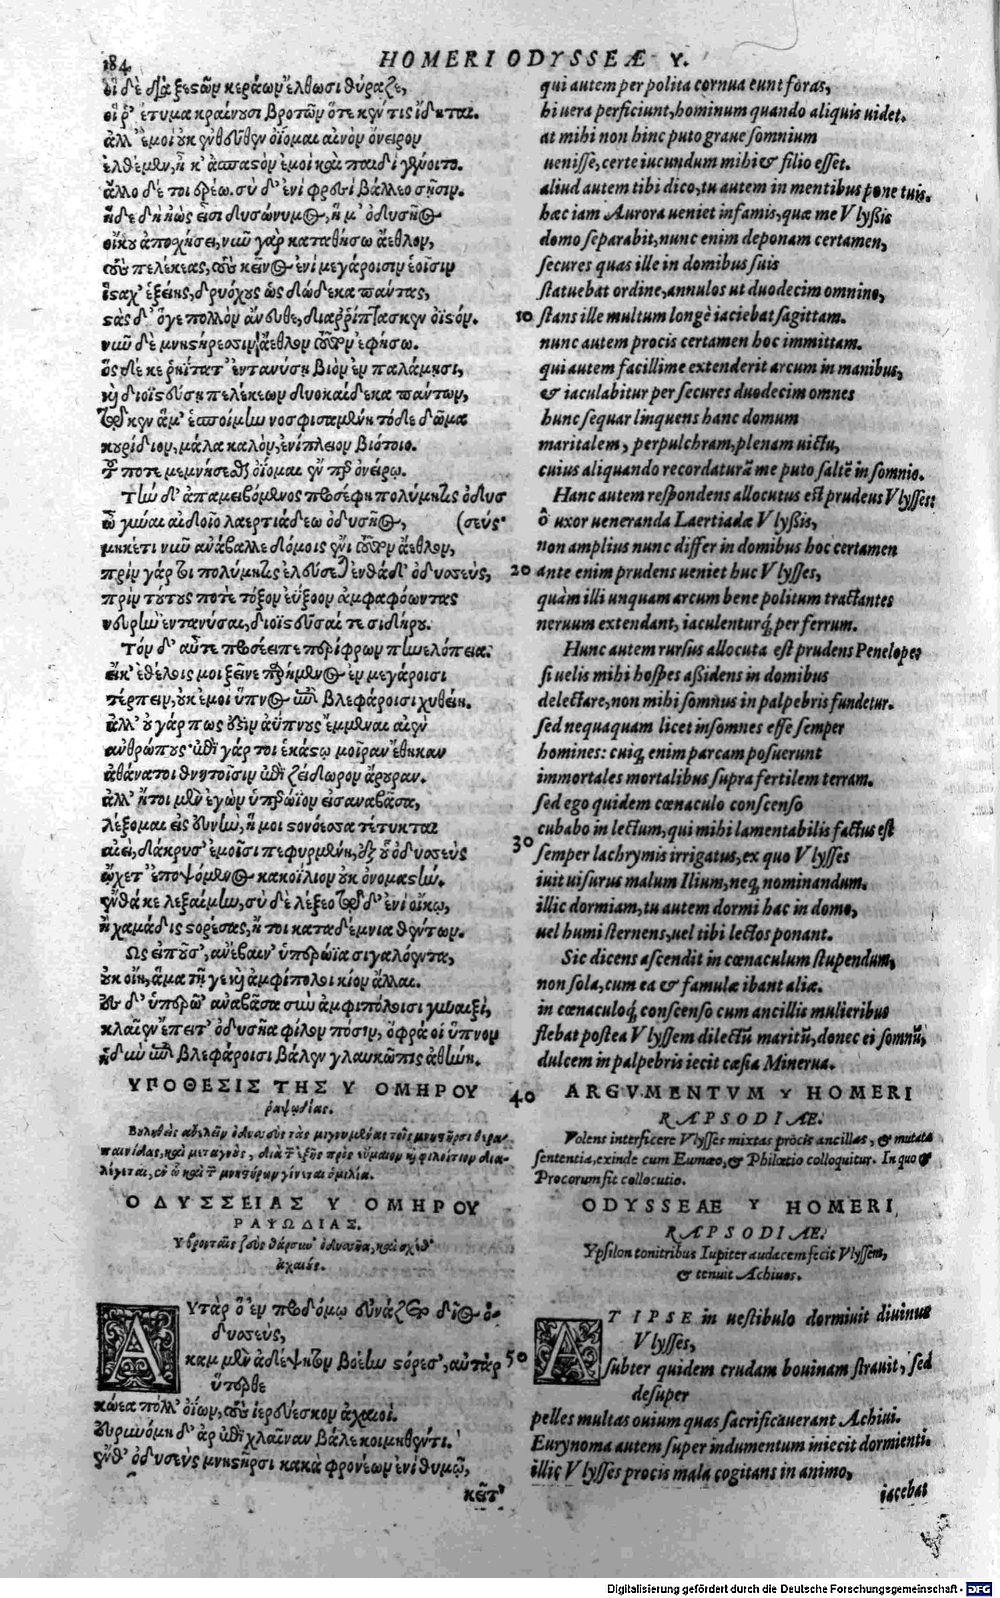 184
HOMERI ODYSSEAE Υ.
οἳ δὲ διὰ ξεστῶν κεράων ἔλθωσι θύραζε,
οἵ ῥ' ἔτυμα κραίνουσι βροτῶν ὅτε κέν τις ἴδηται.
ἀλλ' ἐμοὶ οὐκ ἐντεῦθεν ὀΐομαι αἰνὸν ὄνειρον
ἐλθέμεν, ἦ κ' ἀσπαστὸν ἐμοὶ καὶ παιδὶ γένοιτο.
ἄλλο δέ τοι ἐρέω. σὺ δ' ἐνὶ φρεσὶ βάλλεο σῇσιν.
ἥδε δὴ ἠὼς εἶσι δυσώνυμος, ἥ μ' ὀδυσῆος
οἴκου ἀποσχήσει, νῦν γὰρ καταθήσω ἄεθλον,
τοὺς πελέκεας, τοὺς κεῖνος ἐνὶ μεγάροισιν ἑοῖσιν
ἵστασχ' ἑξείης, δρυόχους ὣς δώδεκα πάντας,
στὰς δ' ὅγε πολλὸν ἄνευθε, διαῤῥίπτασκεν ὀϊστόν.
νῦν δὲ μνηστήρεσσιν ἄεθλον τοῦτον ἐφήσω.
ὃς δέ κε ῥηΐτατ' ἐντανύσῃ βιὸν ἐν παλάμῃσι,
καὶ διοϊστεύσῃ πελέκεων δυοκαίδεκα πάντων,
τῷδε κεν ἅμ' ἑσποίμην νοσφισαμένη τόδε δῶμα
κουρίδιον, μάλα καλὸν, ἐνίπλειον βιότοιο.
τοῦ ποτε μεμνήσεσθαι ὀΐομαι ἔν περ ὀνείρῳ.
Τὴν δ' ἀπαμειβόμενος προσέφη πολύμητις ὀδυσ
ὦ γύναι αἰδοίη λαερτιάδεω ὀδυσῆος, (σεύς·
μηκέτι νῦν ἀνάβαλλε δόμοις ἔνι τοῦτον ἄεθλον,
πρὶν γάρ τοι πολύμητις ἐλεύσεται ἐνθάδ' ὀδυσσεύς,
πρὶν τούτους ποτὲ τόξον ἐΰξοον ἀμφαφόωντας
νευρὴν ἐντανύσαι, διοϊστεῦσαί τε σιδήρου.
Τὸν δ' αὖτε προσέειπε περίφρων πηνελόπεια.
εἴ κ' ἐθέλοις μοι ξεῖνε παρήμενος ἐν μεγάροισι
τέρπειν, οὔκ ἐμοι ὕπνος ἐπὶ βλεφάροισι χυθείη.
ἀλλ' οὐ γάρ πως ἔστιν ἀΰπνους ἔμμεναι αἰὲν
ἀνθρώπους· ἐπὶ γάρ τοι ἑκάστῳ μοῖραν ἔθηκαν
ἀθάνατοι θνητοῖσιν ἐπὶ ζείδωρον ἄρουραν.
ἀλλ' ἤτοι μὲν ἐγὼν ὑπερώϊον εἰσαναβᾶσα,
λέξομαι εἰς εὐνὴν, ἥ μοι στονόεσσα τέτυκται
αἰεὶ, δάκρυσ' ἐμοῖσι πεφυρμένη, ἐξ οὗ ὀδυσσεὺς
ᾤχετ' ἐποψόμενος κακοΐλιον οὐκ ὀνομαστήν.
ἔνθά κε λεξαίμην, σὺ δὲ λέξεο τῷδ' ἐνὶ οἴκῳ,
ἢ χαμάδις στορέσας, ἤ τοι κατὰ δέμνια θέντων.
Ὣς εἰποῦσ', ἀνέβαιν' ὑπερώϊα σιγαλόεντα,
οὐκ οἴη, ἅμα τῇ γε καὶ ἀμφίπολοι κίον ἄλλαι.
ἐς δ' ὑπερῷ' ἀναβᾶσα σὺν ἀμφιπόλοισι γυναιξὶ,
κλαῖεν ἔπειτ' ὀδυσῆα φίλον πόσιν, ὄφρά οἱ ὕπνον
ἡδὺν ἐπὶ βλεφάροισι βάλεν γλαυκῶπις ἀθήνη.
ΥΠΟΘΕΣΙΣ ΤΗΣ Υ ΟΜΗΡΟΥ
ῥαψωδίας.
Βουληθεὶς ἀνελεῖν ὀδυσσεὺς τὰς μιγνυμένας τοῖς μνηστῆρσι θερα-
παινίδας, καὶ μεταγνοὺς, διὰ τοῦ ἑξῆς πρὸς εὔμαιον καὶ φιλοίτιον δια-
λέγεται, ἐν ᾧ καὶ τῶν μνηστήρων γίνεται ὁμιλία.
ΟΔΥΣΣΕΙΑΣ Υ ΟΜΗΡΟΥ
ΡΑΨΩΔΙΑΣ.
Υ βρονταῖς ζεὺς θάρσυν' ὀδυσσῆα, καὶ σχέθ'
ἀχαιούς.
ΑΥΤΑΡ ὃ ἐν προδόμῳ εὐνάζετο δῖος ὀ-
δυσσεύς,
καμ μὲν ἀδέψητον βοέην στόρεσ', αὐτὰρ
ὕπερθε
κώεα πόλλ' ὀΐων, τοὺς ἱερεύεσκον ἀχαιοί.
Εὐρυνόμη δ' ἄρ ἐπὶ χλαῖναν βάλε κοιμηθέντι.
ἔνθ' ὀδυσεὺς μνηστῆρσι κακὰ φρονέων ἐνὶ θυμῷ,
κεῖτ'
qui autem per polita cornua eunt foras,
hi uera perficiunt, hominum quando aliquis uidet.
at mihi non hinc puto graue somnium
uenisse, certe iucundum mihi & filio esset.
aliud autem tibi dico, tu autem in mentibus pone tuis.
hæc iam Aurora ueniet infamis, quæ me Vlyßis
domo separabit, nunc enim deponam certamen,
secures quas ille in domibus suis
statuebat ordine, annulos ut duodecim omnino,
10 stans ille multum longè iaciebat sagittam.
nunc autem procis certamen hoc immittam.
qui autem facillime extenderit arcum in manibus,
& iaculabitur per secures duodecim omnes
hunc sequar linquens hanc domum
maritalem, perpulchram, plenam uictu,
cuius aliquando recordaturã me puto saltẽ in somnio.
Hanc autem respondens allocutus est prudens Vlysses:
ô uxor ueneranda Laertiadæ Vlyßis,
non amplius nunc differ in domibus hoc certamen
20 ante enim prudens ueniet huc Vlysses,
quàm illi unquam arcum bene politum tractantes
neruum extendant, iaculenturq; per ferrum.
Hunc autem rursus allocuta est prudens Penelope
si uelis mihi hospes aßidens in domibus
delectare, non mihi somnus in palpebris fundetur.
sed nequaquam licet insomnes esse semper
homines: cuiq; enim parcam posuerunt
immortales mortalibus supra fertilem terram.
sed ego quidem cœnaculo conscenso
cubabo in lectum, qui mihi lamentabilis factus est
30 semper lachrymis irrigatus, ex quo Vlysses
iuit uisurus malum Ilium, neq; nominandum.
illic dormiam, tu autem dormi hac in domo,
uel humi sternens, uel tibi lectos ponant.
Sic dicens ascendit in cœnaculum stupendum,
non sola, cum ea & famulæ ibant aliæ.
in cœnaculoq; conscenso cum ancillis mulieribus
flebat postea Vlyssem dilectũ maritũ, donec ei somnũ,
dulcem in palpebris iecit cæsia Minerua.
40 ARGVMENTVM Υ HOMERI
RAPSODIAE.
Volens interficere Vlysses mixtas procis ancillas, & mutata
sententia, exinde cum Eumæo, & Philœtio colloquitur. In quo &
Procorum fit collocutio.
ODYSSEAE Υ HOMERI,
RAPSODIAE.
Ypsilon tonitribus Iupiter audacem fecit Vlyssem,
& tenuit Achiuos.
AT IPSE in uestibulo dormiuit diuinus
Vlysses,
50 subter quidem crudam bouinam strauit, sed
desuper
pelles multas ouium quas sacrificauerant Achiui.
Eurynoma autem super indumentum iniecit dormienti.
illic Vlysses procis mala cogitans in animo,
iacebat
Digitalisierung gefördert durch die Deutsche Forschungsgemeinschaft - DFG